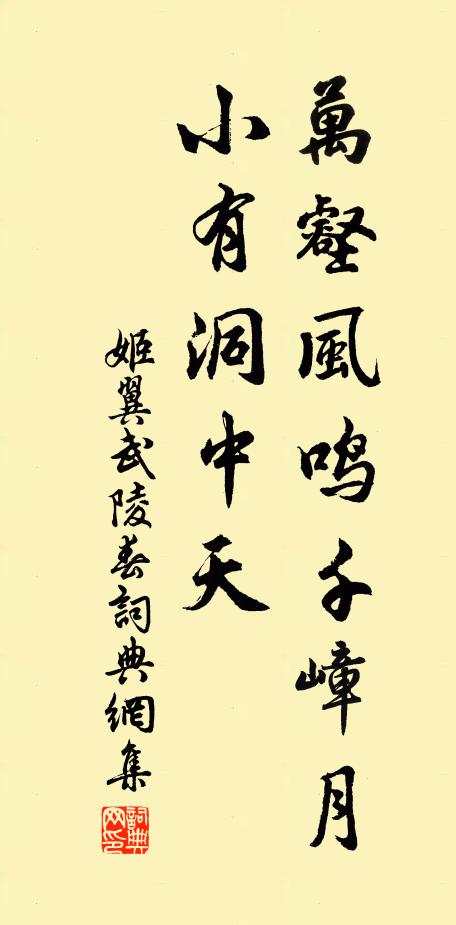 萬壑風鸣千嶂月
小有洞中天
姬翼武陵春詞典網集
詞典网印